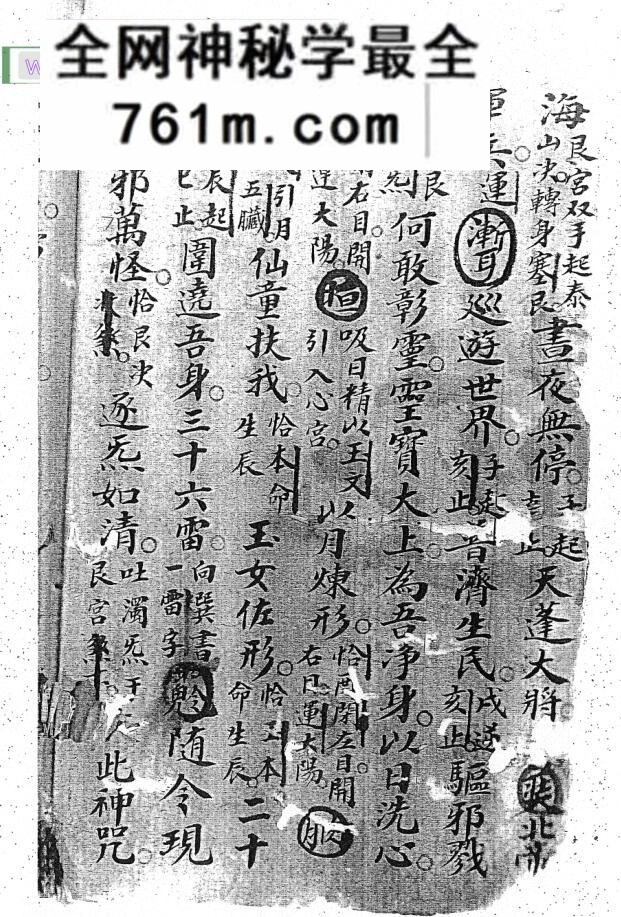 全网神秘学最全
761m.com
W
海艮宫双手起泰山决转身塞艮晝夜無停子起止天蓬大將北帝
兵運巡遊世界子起亥止普濟生民戌亥止驅邪戮
艮何敢彰靈靈寶大上為吾净身以日洗心
右目開運大陽吸日精以玉文引入心宫以月煉形恰閉左目開右運太陽
引月五臟仙童扶我恰本命生辰玉女佐形恰本命生辰二十
辰起巳止圍遶吾身三十六雷向巽書一雷字随令現
邪萬怪恰艮决煞逐炁如清吐濁炁艮宫此神咒